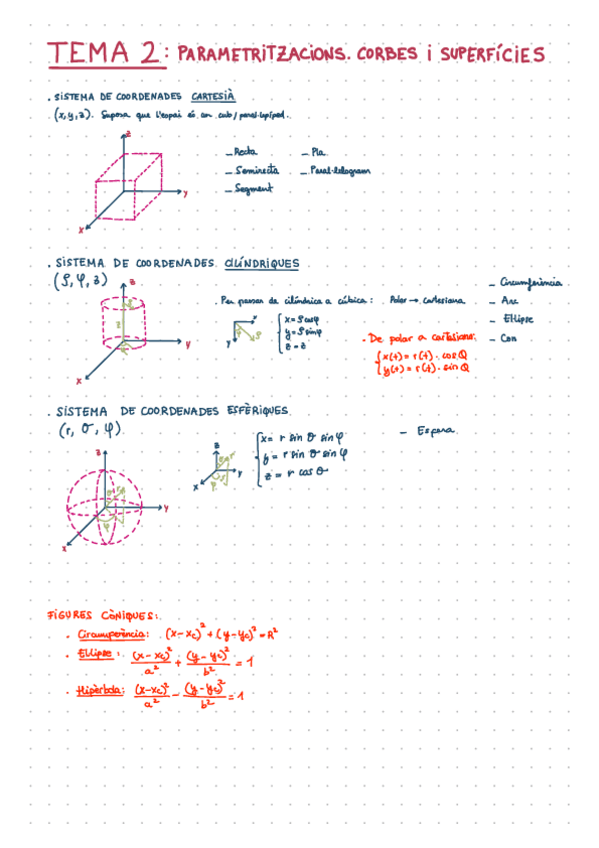 TEMA 2: PARAMETRITZACIONS. CORBES i SUPERFÍCIES
. SISTEMA DE COORDENADES CARTESIÀ
(x, y, z). Suposa que l'espai és un cub/paral·lepíped.
z
y
x
- Recta
- Semirecta
- Segment
- Pla
- Paral·lelogram
. SISTEMA DE COORDENADES CILÍNDRIQUES
(ρ, φ, z)
z
y
x
. Per passar de cilíndrica a cúbica: Polar → cartesiana
x = ρ cosφ
y = ρ sinφ
z = z
. De polar a cartesiana:
x(t) = r(t) · cos Q
y(t) = r(t) · sin Q
- Circumferència
- Arc
- El·lipse
- Con
. SISTEMA DE COORDENADES ESFÈRIQUES.
(r, σ, φ)
z
y
x
z
y
x
x = r sin θ sin φ
y = r sin θ sin φ
z = r cos θ
- Esfera
FIGURES CÒNIQUES:
. Circumferència: (x-xc)² + (y-yc)² = R²
. El·lipse: (x-xc)²/a² + (y-yc)²/b² = 1
. Hipèrbola: (x-xc)²/a² - (y-yc)²/b² = 1